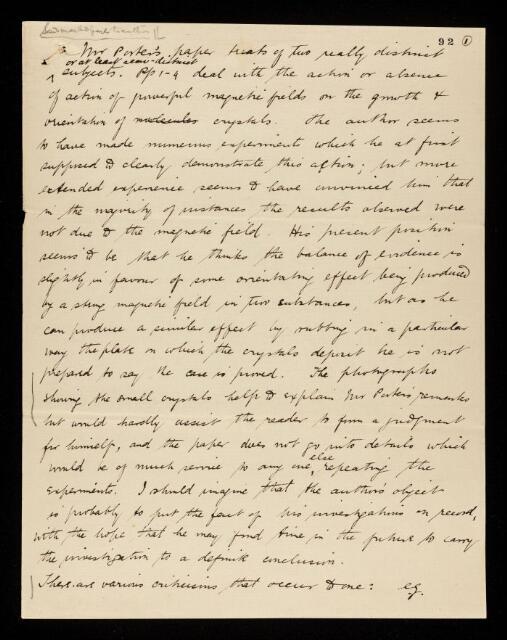 92 ①
Mr Porter's paper treats of two really distinct
or at least semi-distinct
subjects. Pp 1-4 deal with the action or absence
of action of powerful magnetic fields on the growth &
orientation of molecules crystals. The author seems
to have made numerous experiments which he at first
supposed to clearly demonstrate this action; but more
extended experience seems to have convinced him that
in the majority of instances the results observed were
not due to the magnetic field. His present position
seems to be that he thinks the balance of evidence is
slightly in favour of some orientating effect being produced
by a strong magnetic field in two substances, but as he
can produce a similar effect by rubbing in a particular
way the plate on which the crystals deposit he is not
prepared to say the case is proved. The photographs
showing the small crystals help to explain Mr Porter's remarks
but would hardly assist the reader to form a judgment
for himself, and the paper does not go into details which
would be of much service to any one else repeating the
experiments. I should imagine that the author's object
is probably to put the fact of his investigations on record,
with the hope that he may find time in the future to carry
the investigation to a definite conclusion.
There are various criticisms that occur to one: e.g.